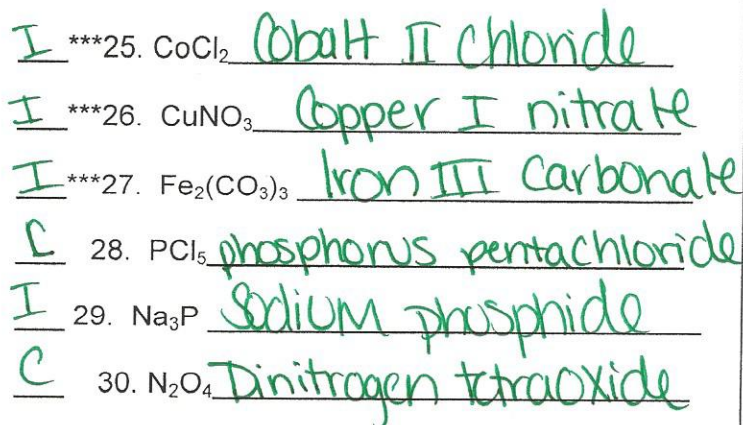 I ***25. CoCl₂ Cobalt II chloride
I ***26. CuNO₃ Copper I nitrate
I ***27. Fe₂(CO₃)₃ Iron III Carbonate
C 28. PCl₅ phosphorus pentachloride
I 29. Na₃P Sodium phosphide
C 30. N₂O₄ Dinitrogen tetraoxide